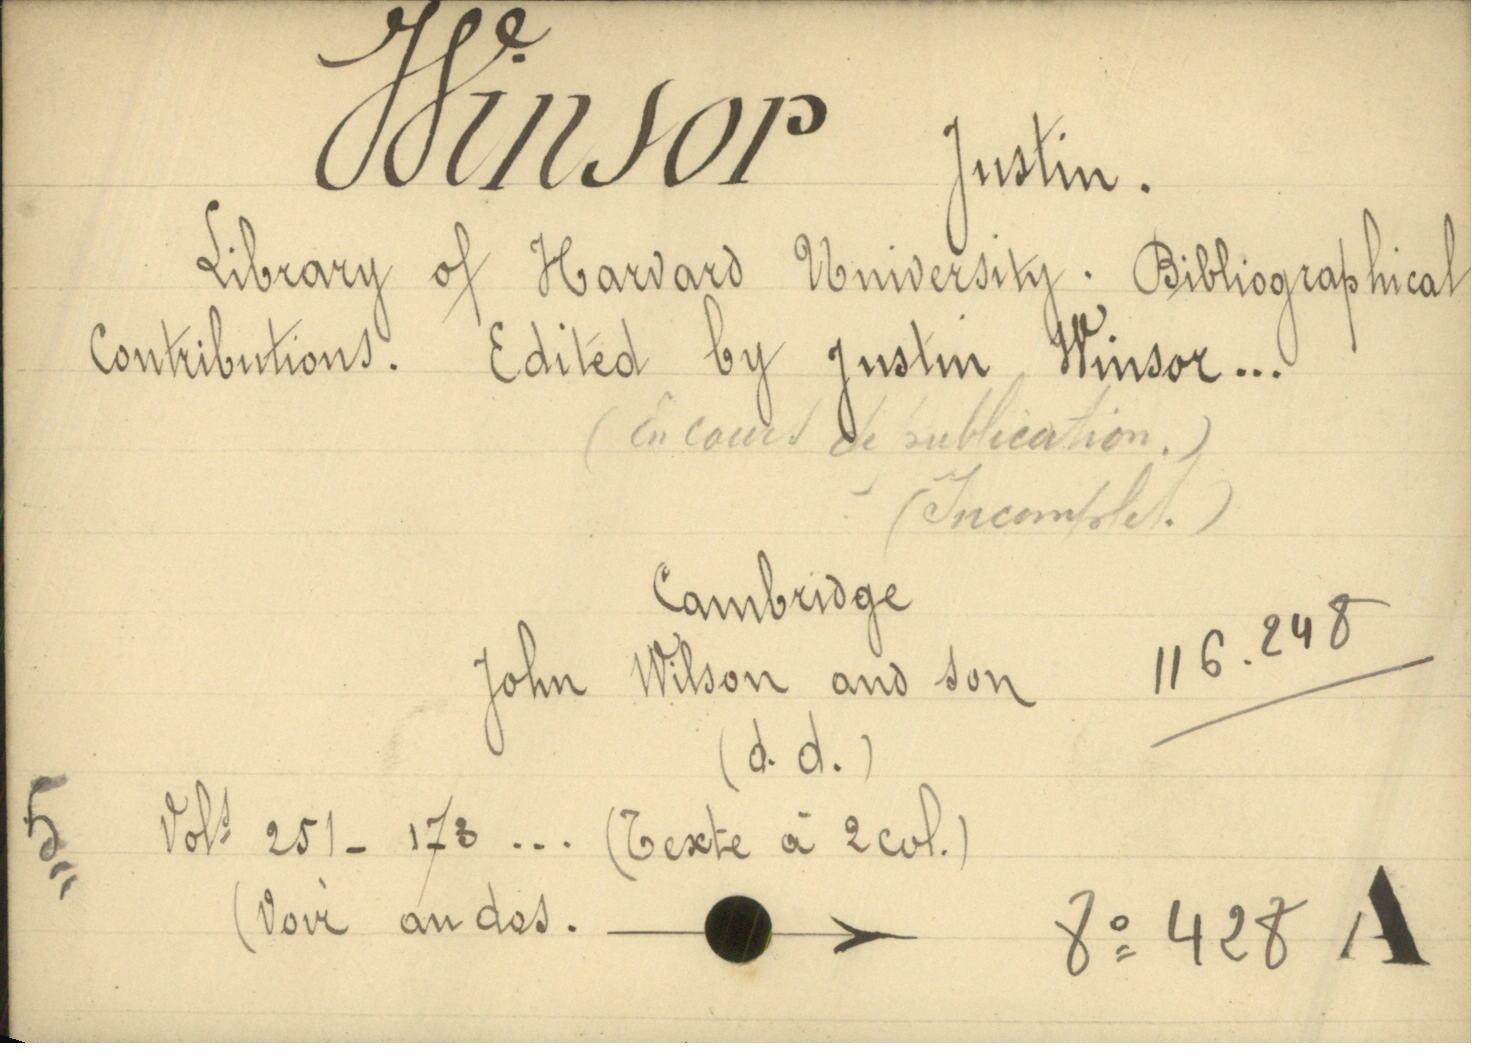 Winsor Justin.
Library of Harvard University. Bibliographical
Contributions. Edited by Justin Winsor...
(En cours de publication.)
(Incomplet.)
Cambridge
John Wilson and son
116.248
(d. d.)
Vols 251 - 173 ... (Texte à 2 col.)
(Voir au dos.
8º 428 A